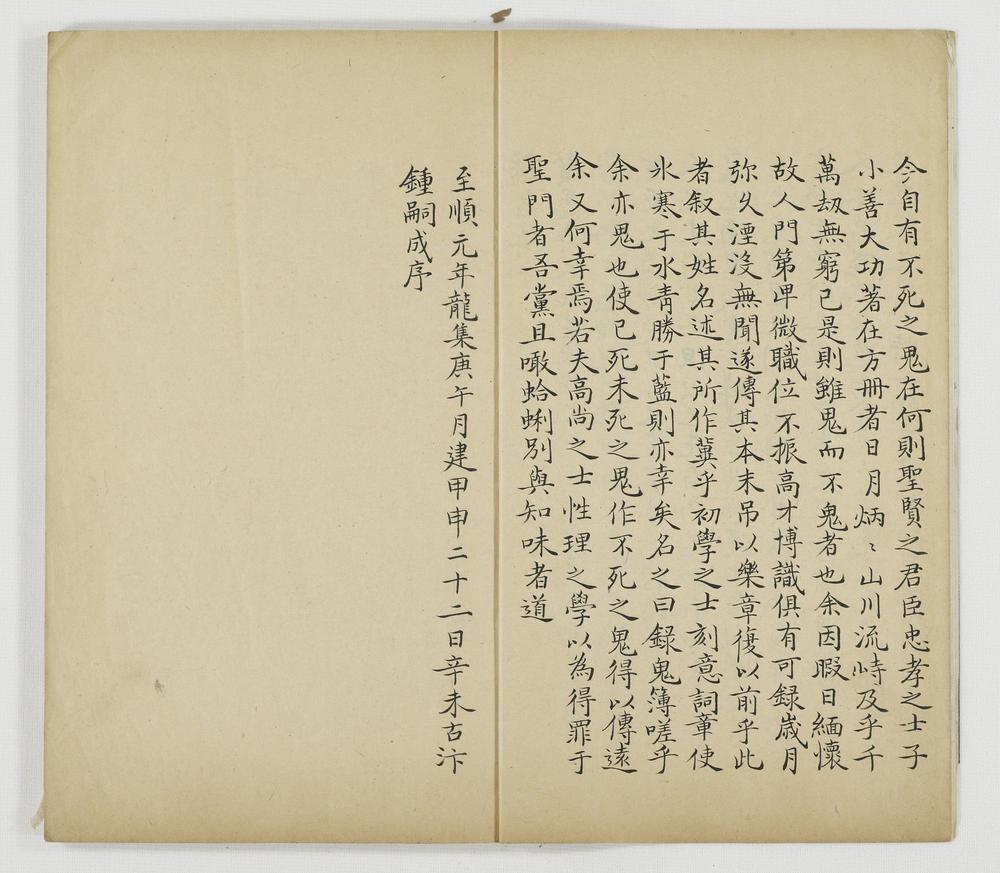 今自有不死之鬼在何則聖賢之君臣忠孝之士子
小善大功著在方冊者日月炳〻山川流峙及乎千
萬刼無窮已是則雖鬼而不鬼者也余因暇日緬懷
故人門第卑微職位不振高才博識俱有可録歲月
弥久湮沒無聞遂傳其本末吊以樂章復以前乎此
者叙其姓名述其所作冀乎初學之士刻意詞章使
氷寒于水青勝于藍則亦幸矣名之曰録鬼簿嗟乎
余亦鬼也使已死未死之鬼作不死之鬼得以傳遠
余又何幸焉若夫高尚之士性理之學以為得罪于
聖門者吾黨且噉蛤蜊別與知味者道
至順元年龍集庚午月建甲申二十二日辛未古汴
鍾嗣成序